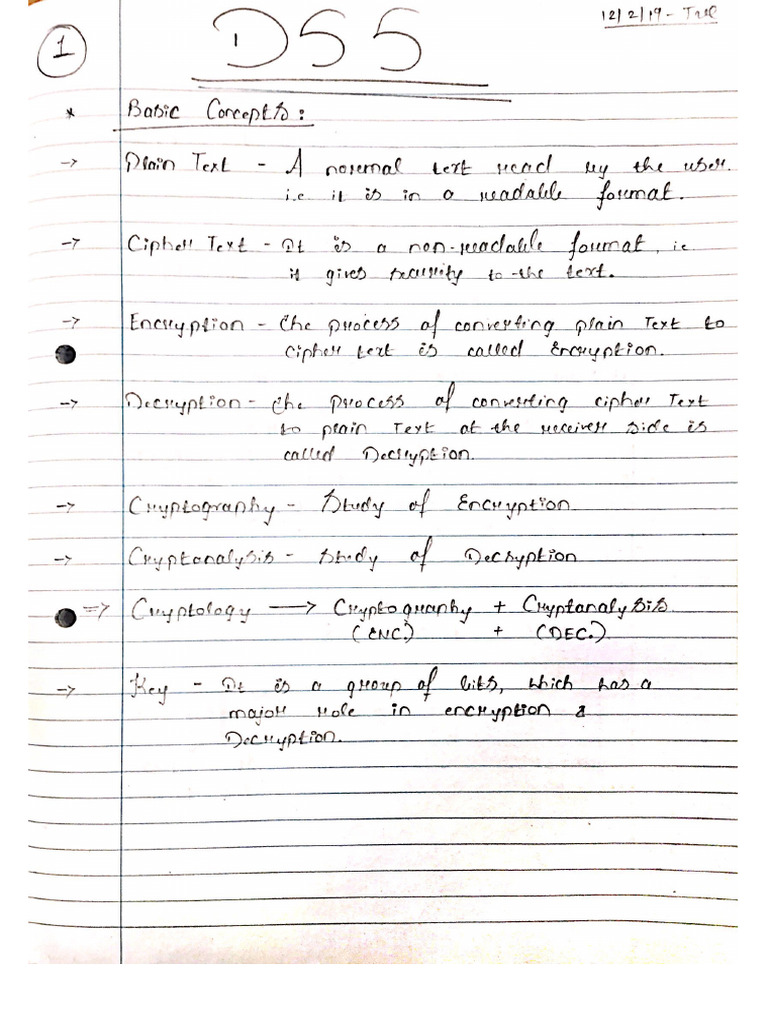 12/2/19 - Tue
1
DSS
* Basic Concepts :
-> Plain Text - A normal text read by the user.
i.e it is in a readable format.
-> Cipher Text - It is a non-readable format, i.e
it gives security to the text.
-> Encryption - the process of converting plain Text to
cipher text is called Encryption.
-> Decryption - the process of converting cipher Text
to plain Text at the receiver side is
called Decryption.
-> Cryptography - Study of Encryption
-> Cryptanalysis - Study of Decryption
=> Cryptology -> Cryptography + Cryptanalysis
(ENC.) + (DEC.)
-> Key - It is a group of bits, which has a
major role in encryption &
Decryption.